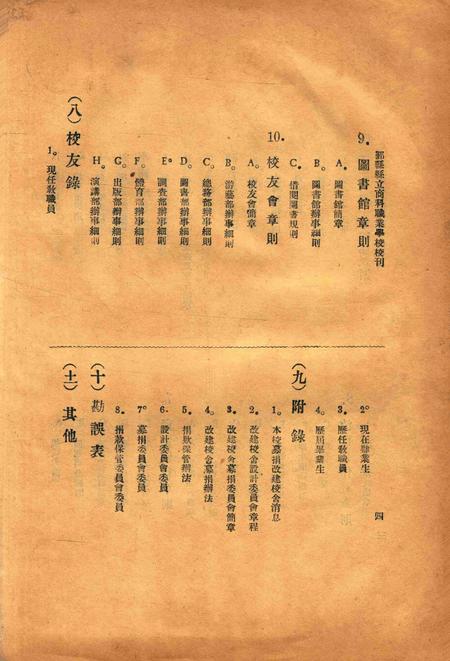 鄞縣縣立商科職業學校校刊
9. 圖書館章則
A. 圖書館簡章
B. 圖書館辦事細則
C. 借閱圖書規則
10. 校友會章則
A. 校友會簡章
B. 游藝部辦事細則
C. 總務部辦事細則
D. 圖書部辦事細則
E. 調查部辦事細則
F. 體育部辦事細則
G. 出版部辦事細則
H. 演講部辦事細則
(八) 校友錄
1. 現任教職員
2. 現在肄業生
3. 歷任教職員
4. 歷屆畢業生
(九) 附錄
1. 本校募捐改建校舍消息
2. 改建校舍設計委員會章程
3. 改建校舍募捐委員會簡章
4. 改建校舍募捐辦法
5. 捐款保管辦法
6. 設計委員會委員
7. 募捐委員會委員
8. 捐款保管委員會委員
(十) 勘誤表
(十一) 其他
四